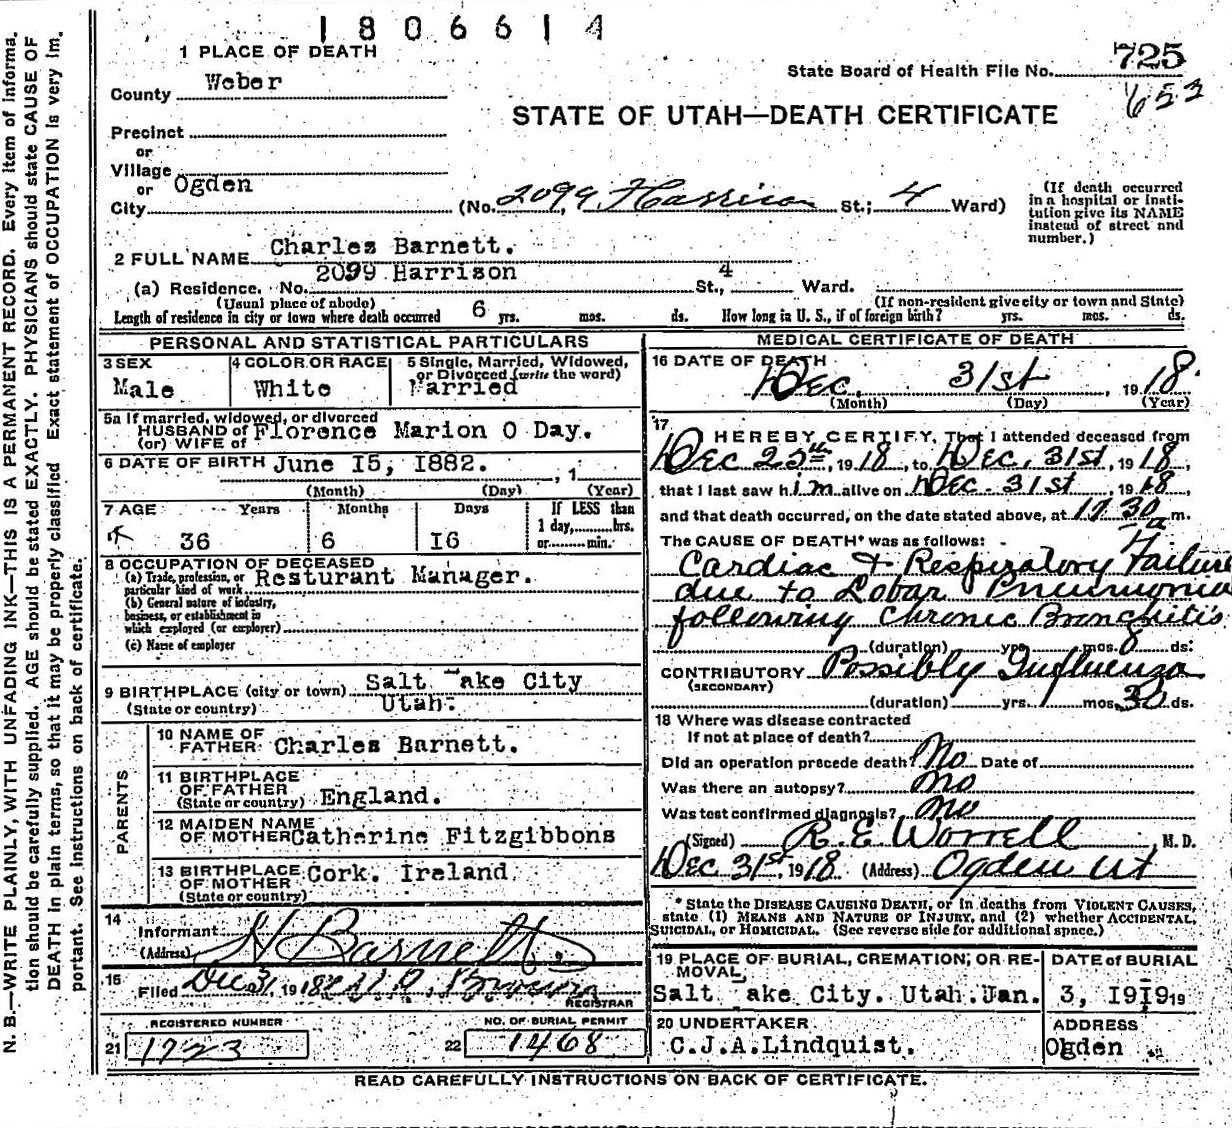 1806614
1 PLACE OF DEATH
State Board of Health File No. 725
County Weber
653
STATE OF UTAH—DEATH CERTIFICATE
Precinct
or
Village
or Ogden
City (No. 2099 Harrison St.; 4 Ward)
(If death occurred in a hospital or institution give its NAME instead of street and number.)
2 FULL NAME Charles Barnett.
(a) Residence. No. 2099 Harrison St., 4 Ward.
(Usual place of abode) (If non-resident give city or town and State)
Length of residence in city or town where death occurred 6 yrs. mos. ds. How long in U. S., if of foreign birth? yrs. mos. ds.
PERSONAL AND STATISTICAL PARTICULARS
3 SEX
Male
4 COLOR OR RACE
White
5 Single, Married, Widowed,
or Divorced (write the word)
Married
5a If married, widowed, or divorced
HUSBAND OF
(or) WIFE OF Florence Marion O Day.
6 DATE OF BIRTH June 15, 1882. , 1
(Month) (Day) (Year)
7 AGE Years Months Days
36 6 16
If LESS than
1 day, hrs.
or min.
8 OCCUPATION OF DECEASED
(a) Trade, profession, or
particular kind of work Resturant Manager.
(b) General nature of industry,
business, or establishment in
which employed (or employer)
(c) Name of employer
9 BIRTHPLACE (city or town) Salt Lake City
(State or country) Utah.
PARENTS
10 NAME OF
FATHER Charles Barnett.
11 BIRTHPLACE
OF FATHER
(State or country) England.
12 MAIDEN NAME
OF MOTHER Catherine Fitzgibbons
13 BIRTHPLACE
OF MOTHER
(State or country) Cork. Ireland.
14
Informant
(Address) H Barnett.
15
Filed Dec 31, 1918
REGISTRAR
REGISTERED NUMBER
21 1723
NO. OF BURIAL PERMIT
22 1468
MEDICAL CERTIFICATE OF DEATH
16 DATE OF DEATH
Dec. 31st 1918.
(Month) (Day) (Year)
17
I HEREBY CERTIFY, That I attended deceased from
Dec 25th, 1918, to Dec. 31st, 1918,
that I last saw him alive on Dec. 31st, 1918,
and that death occurred, on the date stated above, at 12 30 a m.
The CAUSE OF DEATH* was as follows:
Cardiac & Respiratory Failure
due to Lobar Pneumonia
following Chronic Bronchitis
(duration) yrs. mos. 8 ds.
CONTRIBUTORY Possibly Influenza
(SECONDARY)
(duration) yrs. mos. 30 ds.
18 Where was disease contracted
If not at place of death?
Did an operation precede death? No Date of
Was there an autopsy? no
Was test confirmed diagnosis? no
(Signed) R. E. Worrell M. D.
Dec 31st. 1918 (Address) Ogden Ut
* State the DISEASE CAUSING DEATH, or in deaths from VIOLENT CAUSES,
state (1) MEANS AND NATURE OF INJURY, and (2) whether ACCIDENTAL,
SUICIDAL, or HOMICIDAL. (See reverse side for additional space.)
19 PLACE OF BURIAL, CREMATION, OR RE-
MOVAL,
Salt Lake City. Utah.
DATE of BURIAL
Jan. 3, 1919 19
20 UNDERTAKER
C.J.A.Lindquist.
ADDRESS
Ogden
READ CAREFULLY INSTRUCTIONS ON BACK OF CERTIFICATE.
N. B.—WRITE PLAINLY, WITH UNFADING INK—THIS IS A PERMANENT RECORD. Every item of informa-
tion should be carefully supplied. AGE should be stated EXACTLY. PHYSICIANS should state CAUSE OF
DEATH in plain terms, so that it may be properly classified. Exact statement of OCCUPATION is very im-
portant. See instructions on back of certificate.